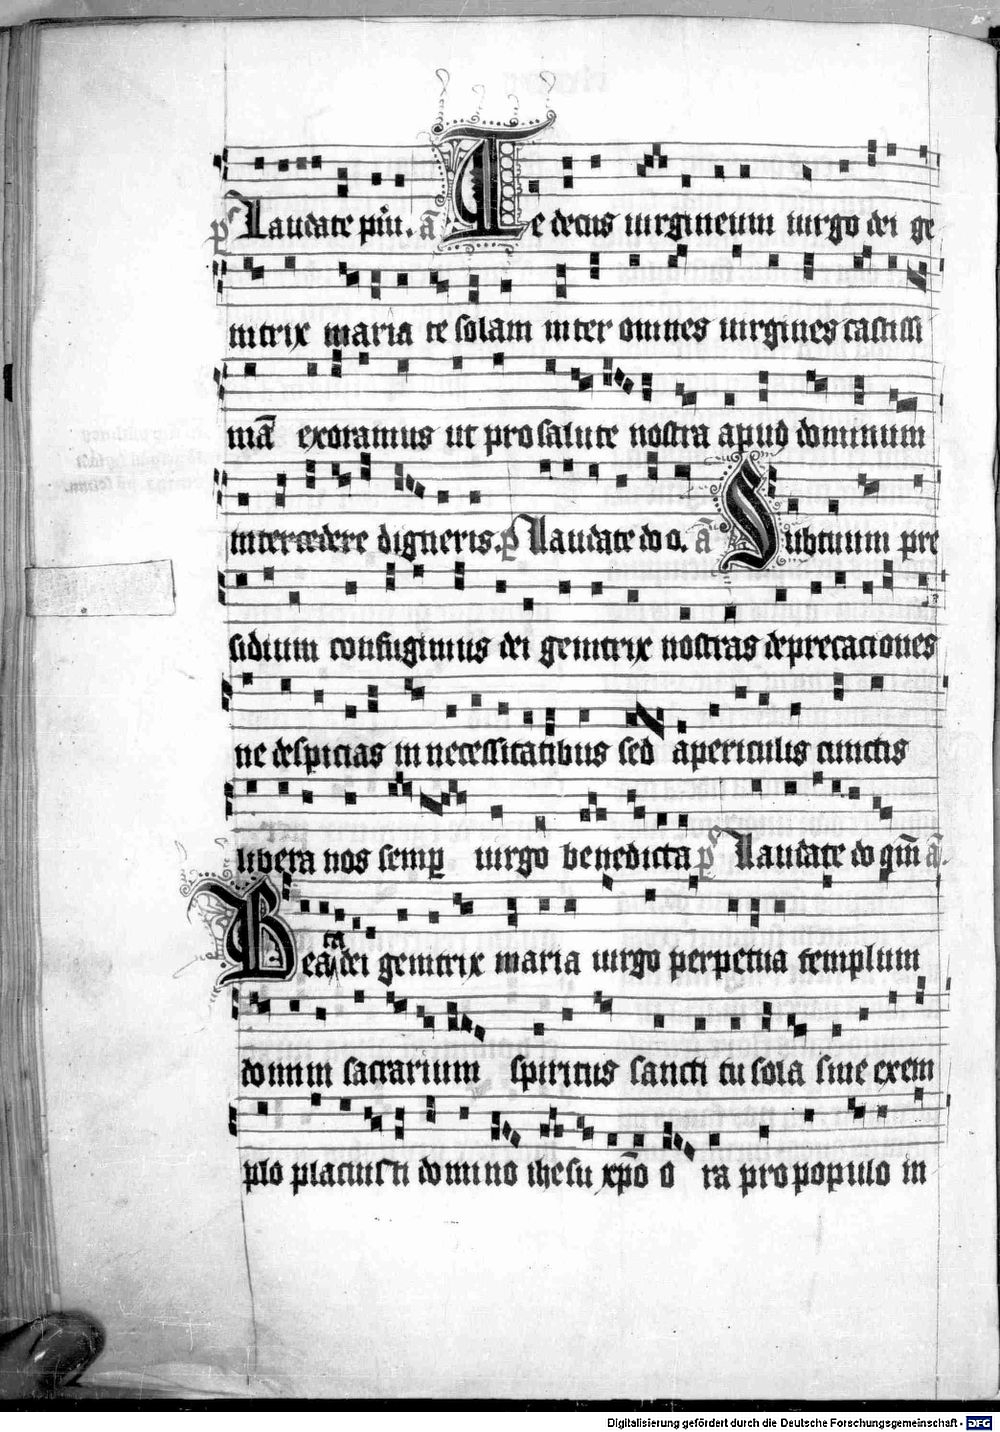 p̃s Laudate pũi. ã Te decus uirgineum uirgo dei ge
nitrix maria te solam inter omnes uirgines castissi
mã exoramus ut pro salute nostra apud dominum
intercedere digneris. p̃s Laudate do o. ã Sub tuum pre
sidium confugimus dei genitrix nostras deprecationes
ne despicias in necessitatibus sed a periculis cunctis
libera nos semp uirgo benedicta p̃s Laudate do qm̃ ã.
Beata dei genitrix maria uirgo perpetua templum
domini sacrarium spiritus sancti tu sola sine exem
plo placuisti domino ihesu xp̃o o ra pro populo in
Digitalisierung gefördert durch die Deutsche Forschungsgemeinschaft - DFG